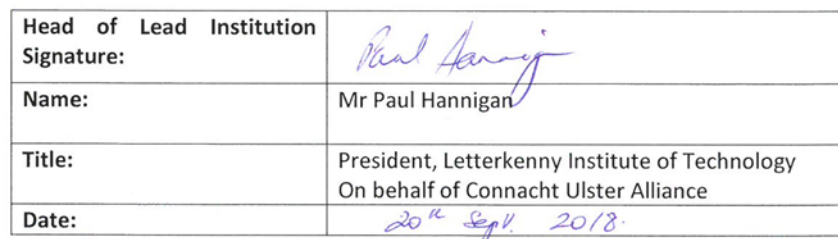 Head of Lead Institution
Signature:
Paul Hannigan
Name:
Mr Paul Hannigan
Title:
President, Letterkenny Institute of Technology
On behalf of Connacht Ulster Alliance
Date:
20th Sept. 2018.